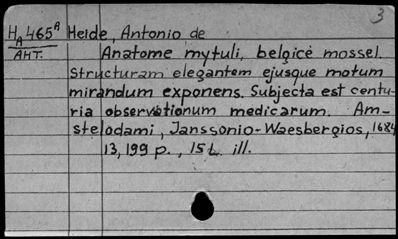 3
H_A 465^A Heide, Antonio de
АНТ. Anatome mytuli, belgicè mossel.
Structuram elegantem ejusque motum
mirandum exponens. Subjecta est centu-
ria observationum medicarum. Am-
stelodami, Janssonio-Waesbergios, 1684
13, 199 p., 15 t. ill.